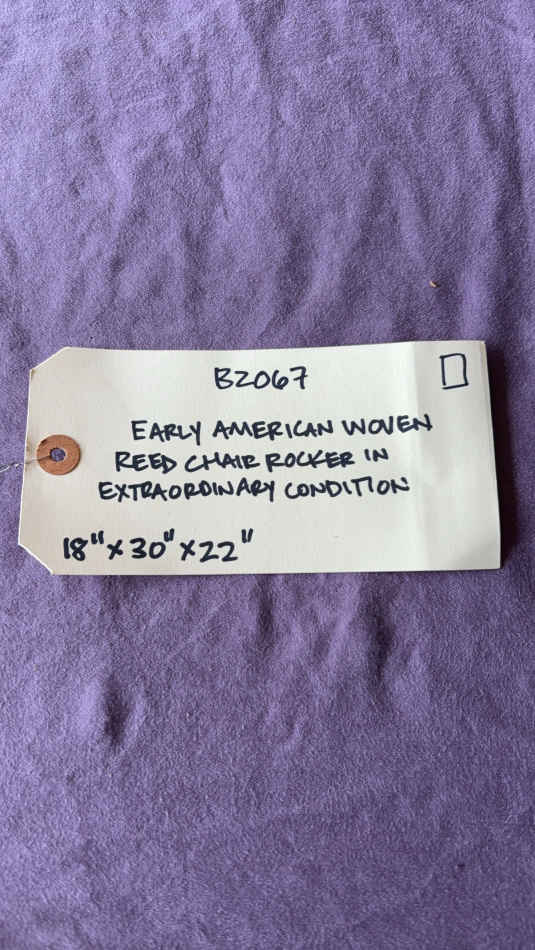 B2067
EARLY AMERICAN WOVEN
REED CHAIR ROCKER IN
EXTRAORDINARY CONDITION
18" x 30" x 22"